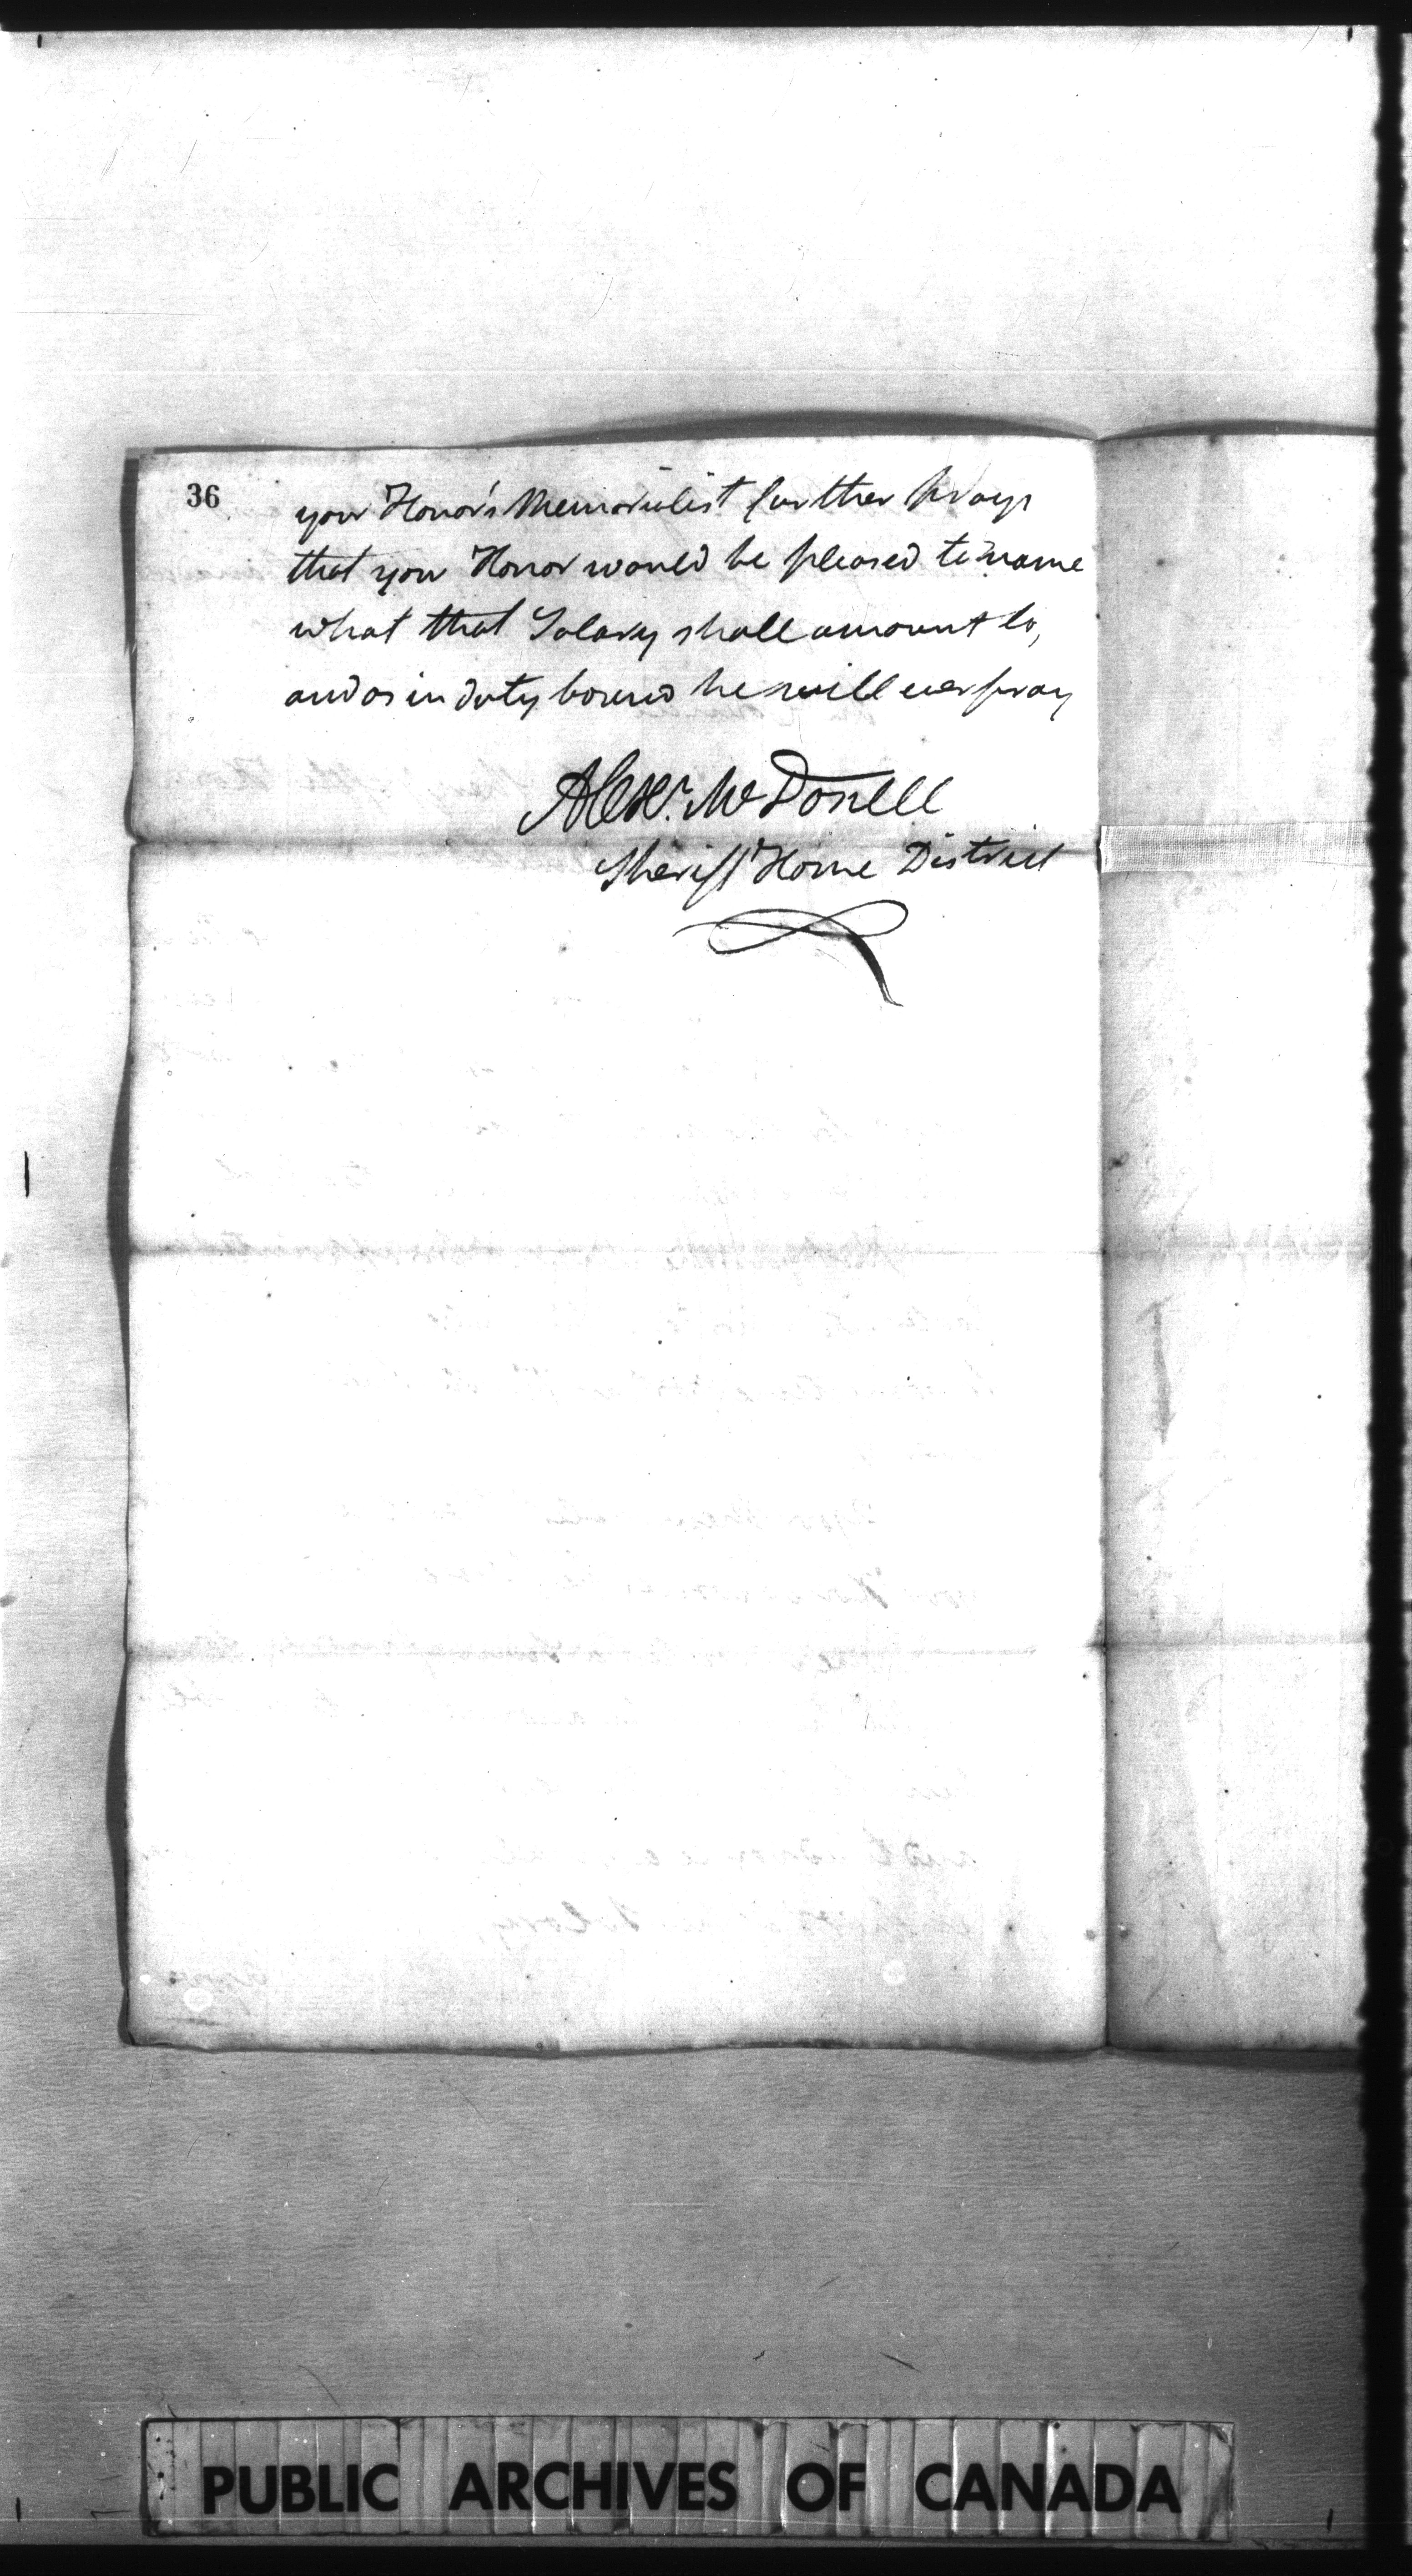 36
your Honor's Memorialist further prays
that your Honor would be pleased to name
what that Salary shall amount to,
and as in duty bound he will ever pray
Alexr. McDonell
Sheriff Home District
PUBLIC ARCHIVES OF CANADA